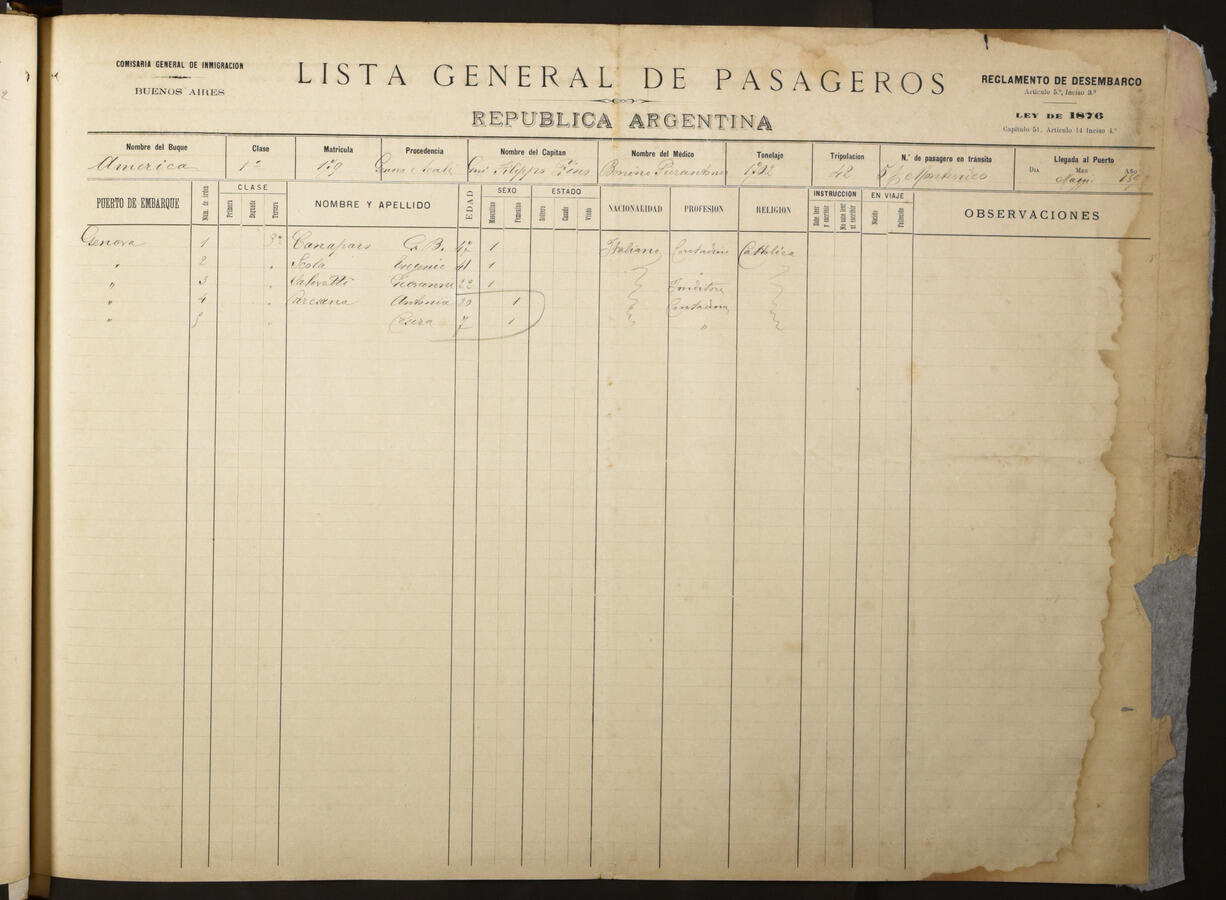 COMISARIA GENERAL DE INMIGRACION
BUENOS AIRES
LISTA GENERAL DE PASAGEROS
REPUBLICA ARGENTINA
REGLAMENTO DE DESEMBARCO
Artículo 5.º, Inciso 3.º
LEY DE 1876
Capítulo 51, Artículo 14 Inciso 4.º
Nombre del Buque Clase Matricula Procedencia Nombre del Capitan Nombre del Médico Tonelaje Tripulacion N.º de pasagero en tránsito Llegada al Puerto
America 1ª Genova e scali 42 Montevideo
DIA MES AÑO
PUERTO DE EMBARQUE Núm. de órden CLASE Primera Segunda Tercera NOMBRE Y APELLIDO EDAD SEXO Masculino Femenino ESTADO Soltero Casado Viudo NACIONALIDAD PROFESION RELIGION INSTRUCCION Sabe leer y escribir No sabe leer ni escribir EN VIAJE Nacido Fallecido OBSERVACIONES
Genova 1 3ª G. B. 47 1 Italiano Contadino Cattolica
" 2 " Scola Eugenio 41 1
" 3 " Salivotti Giovanni 22 1 Fonditore
" 4 " Antonia 30 1 Contadina
" 5 " 7 1 "